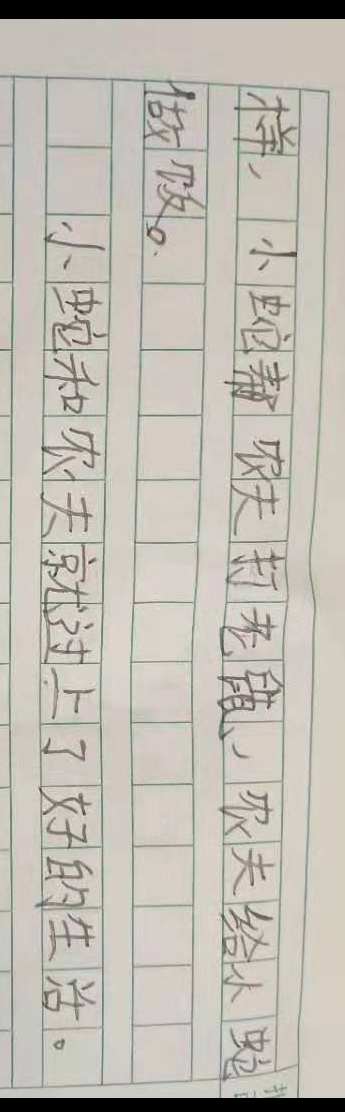 样，小蛇帮农夫打老鼠，农夫给小蛇
做饭。
小蛇和农夫就过上了好的生活。